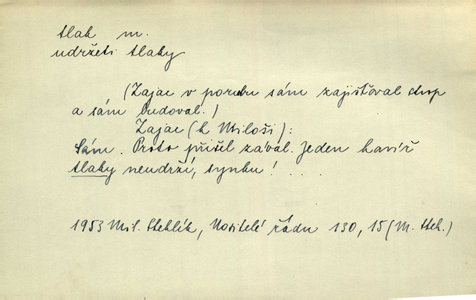 tlak m.
udržeti tlaky
(Zajac v porubu sám zajišťoval strop
a sám budoval.)
Zajac (k Miloši):
Sám. Proto přišel zával. Jeden havíř
tlaky neudrží, synku! . . . .
1953 Mil. Stehlík, Nositelé řádu 130, 15 (M. Steh.)